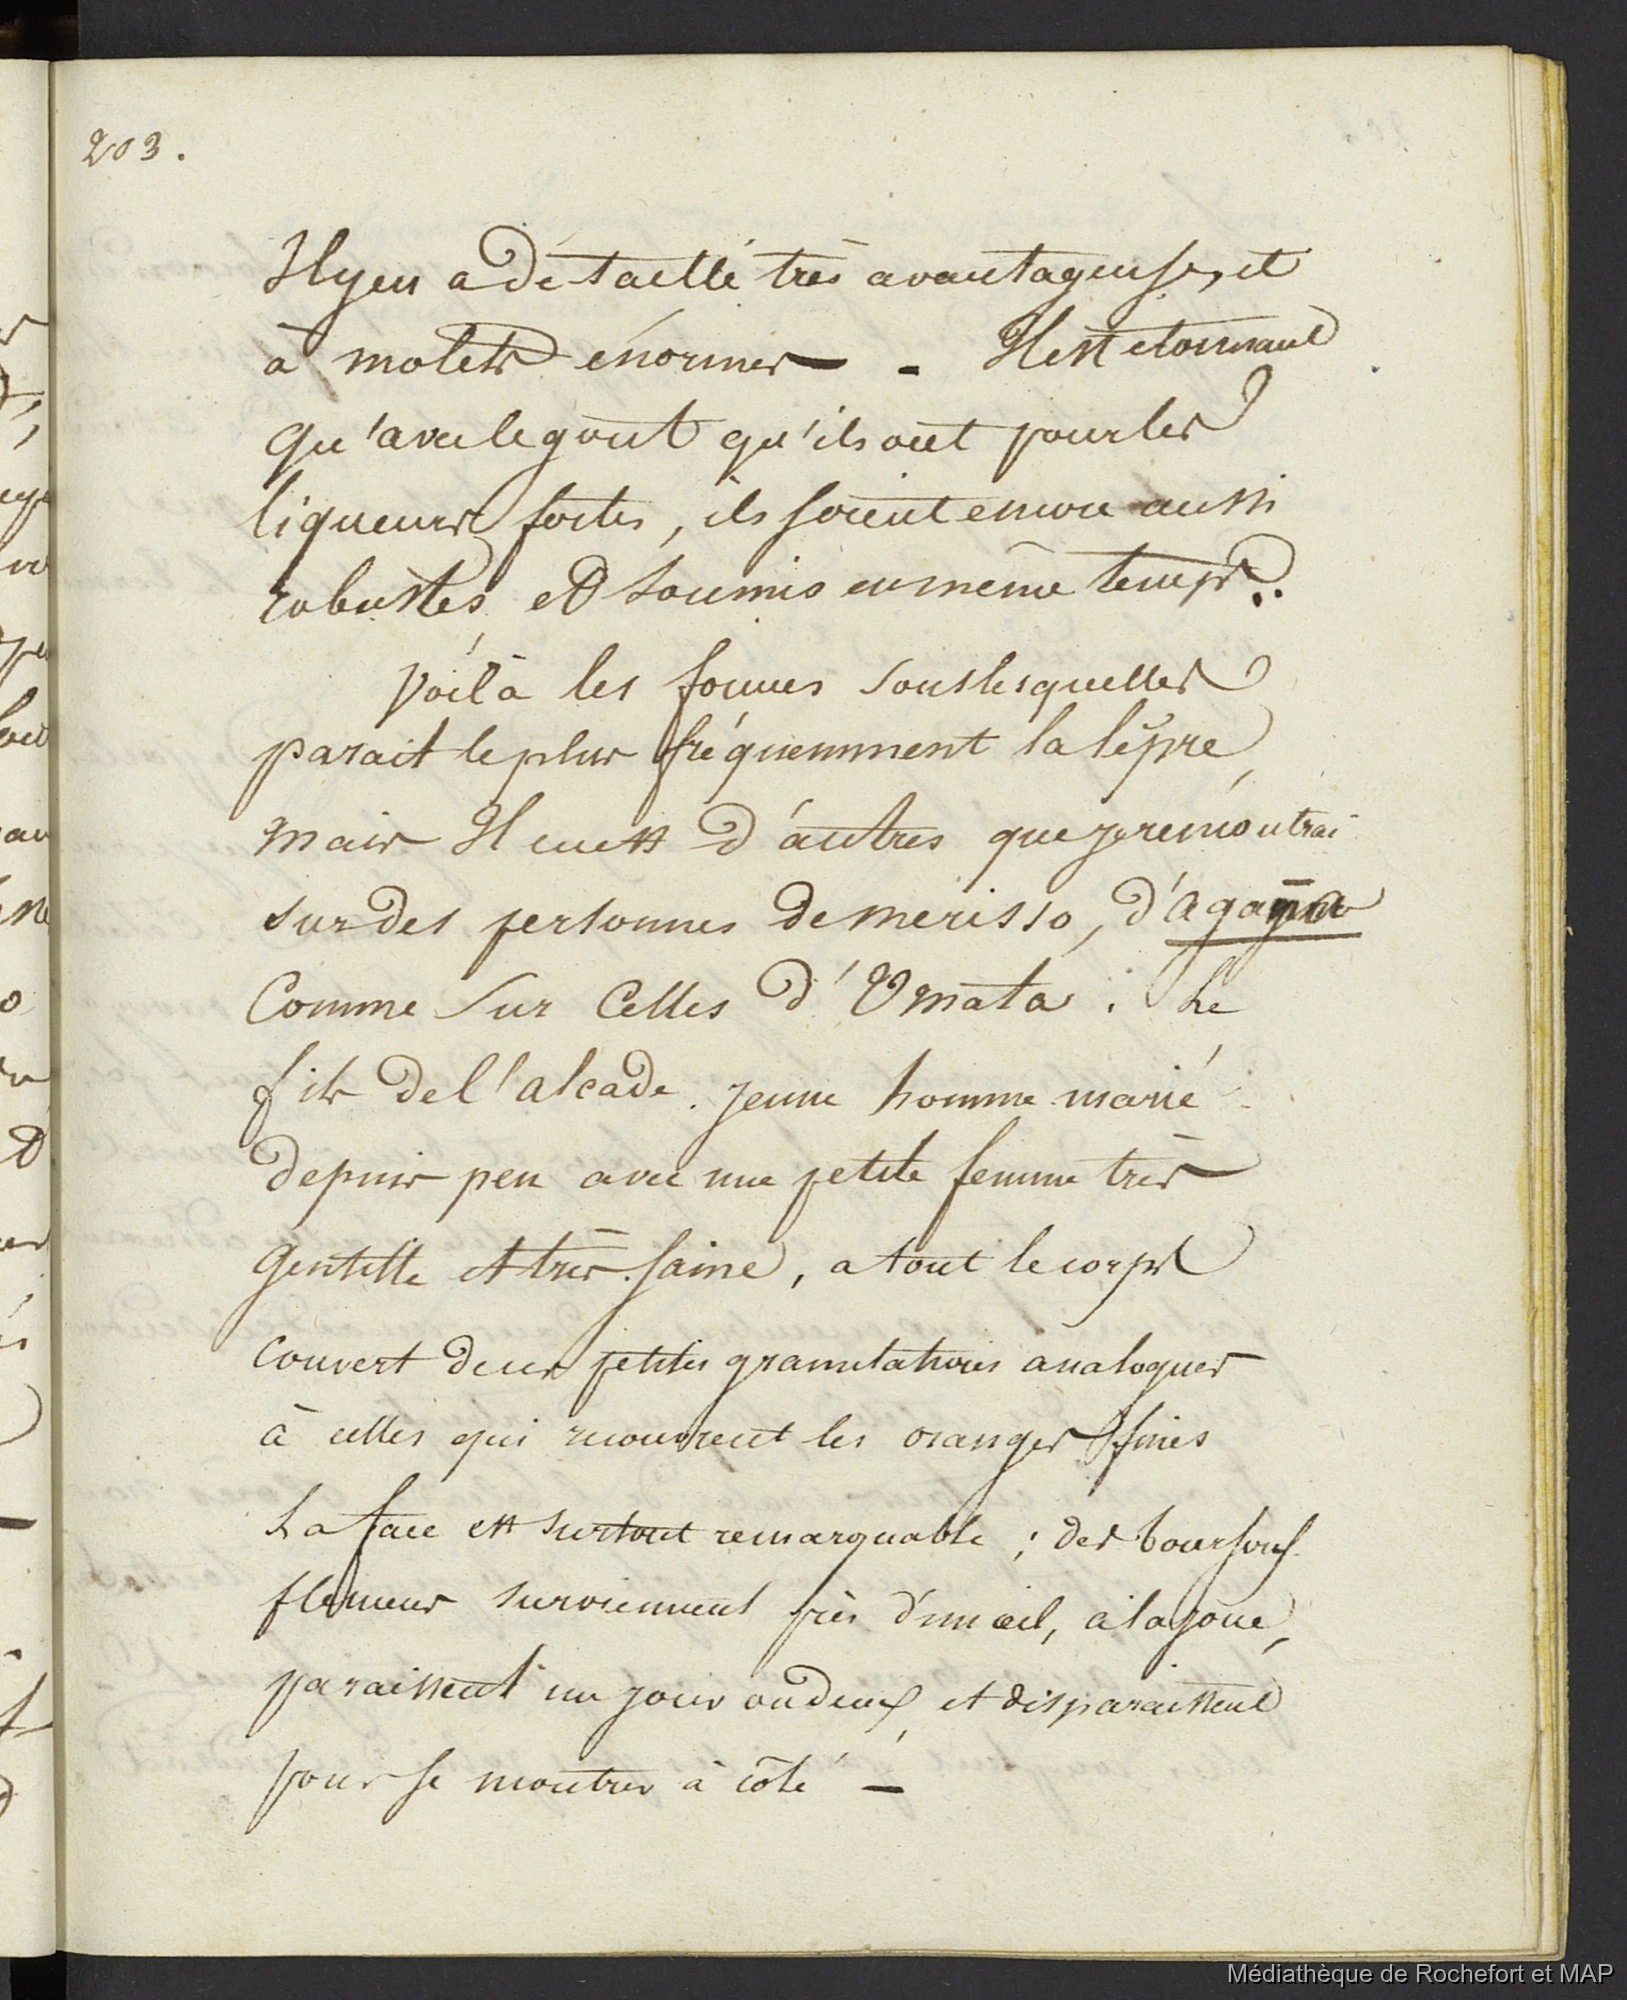 203.
Il y en a de taille très avantageuse, et
à molets énormes - . Il est etonnant
qu'avec le goût qu'ils ont pour les
liqueurs fortes, ils soient encore aussi
robustes et soumis en même temps.
Voilà les formes sous lesquelles
parait le plus fréquemment la lèpre,
mais Il en est d'autres que je rencontrai
sur des personnes de merisso, d'agagna
Comme sur Celles d'Umata. Le
fils de l'alcade. jeune homme marié
depuis peu avec une petite femme très
gentille et très saine, a tout le corps
couvert de ces petites granulations analogues
à celles qui recouvrent les oranges fines
La face est surtout remarquable ; des boursouf-
flemens surviennent près d'un œil, à la joue,
paraissent un jour ou deux, et disparaissent
pour se montrer à côté —
Médiathèque de Rochefort et MAP